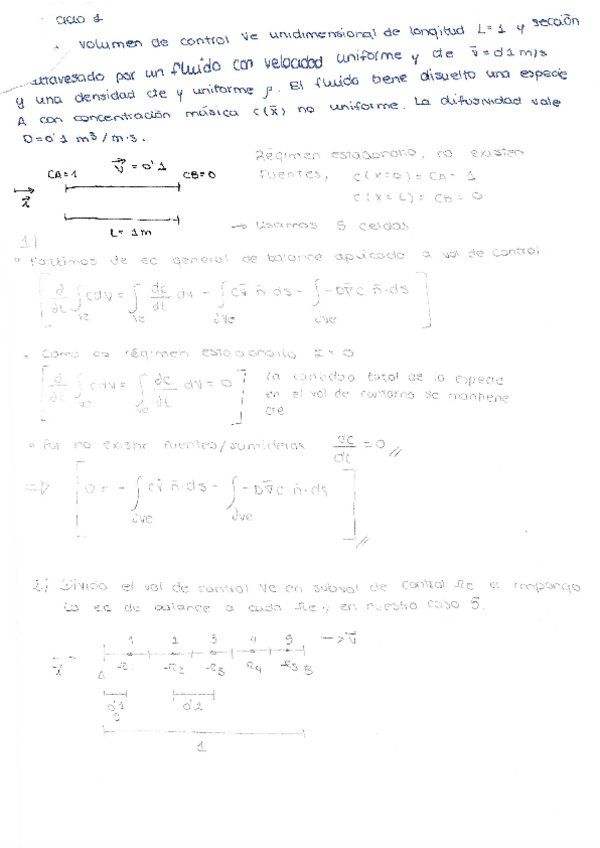 Ciclo 1
• Volumen de control Vc unidimensional de longitud L=1 y sección
atravesado por un fluido con velocidad uniforme y cte v̄=0'1 m/s
y una densidad cte y uniforme ρ. El fluido tiene disuelto una especie
A con concentración másica c(x̄) no uniforme. La difusividad vale
D=0'1 m³/m·s.
Régimen estacionario, no existen
CA=1 v⃗=0'1 CB=0 fuentes, c(x=0)=CA=1
c(x=L)=CB=0
x⃗
L=1m → Usamos 5 celdas
1)
• Partimos de ec general de balance aplicada a vol de control
[d/dt ∫Vc c dV = ∫Vc dc/dt dV - ∫∂Vc c v̄ n̄ ds - ∫∂Vc -D∇̄c n̄·ds]
• Como es régimen estacionario Σ=0
[d/dt ∫Vc c dV = ∫Vc dc/dt dV = 0] la cantidad total de la especie
en el vol de contorno se mantiene
cte
• Por no existir fuentes/sumideros dc/dt = 0 //
⇒ [0 = - ∫∂Vc c v̄ n̄·ds - ∫∂Vc -D∇̄c n̄·ds] //
2) Divido el vol de control Vc en subvol de control Ωe e impongo
la ec de balance a cada Ωe y en nuestro caso 5.
1 2 3 4 5 → v̄
x̄ A Ω1 Ω2 Ω3 Ω4 Ω5 B
0'1 0'2
1